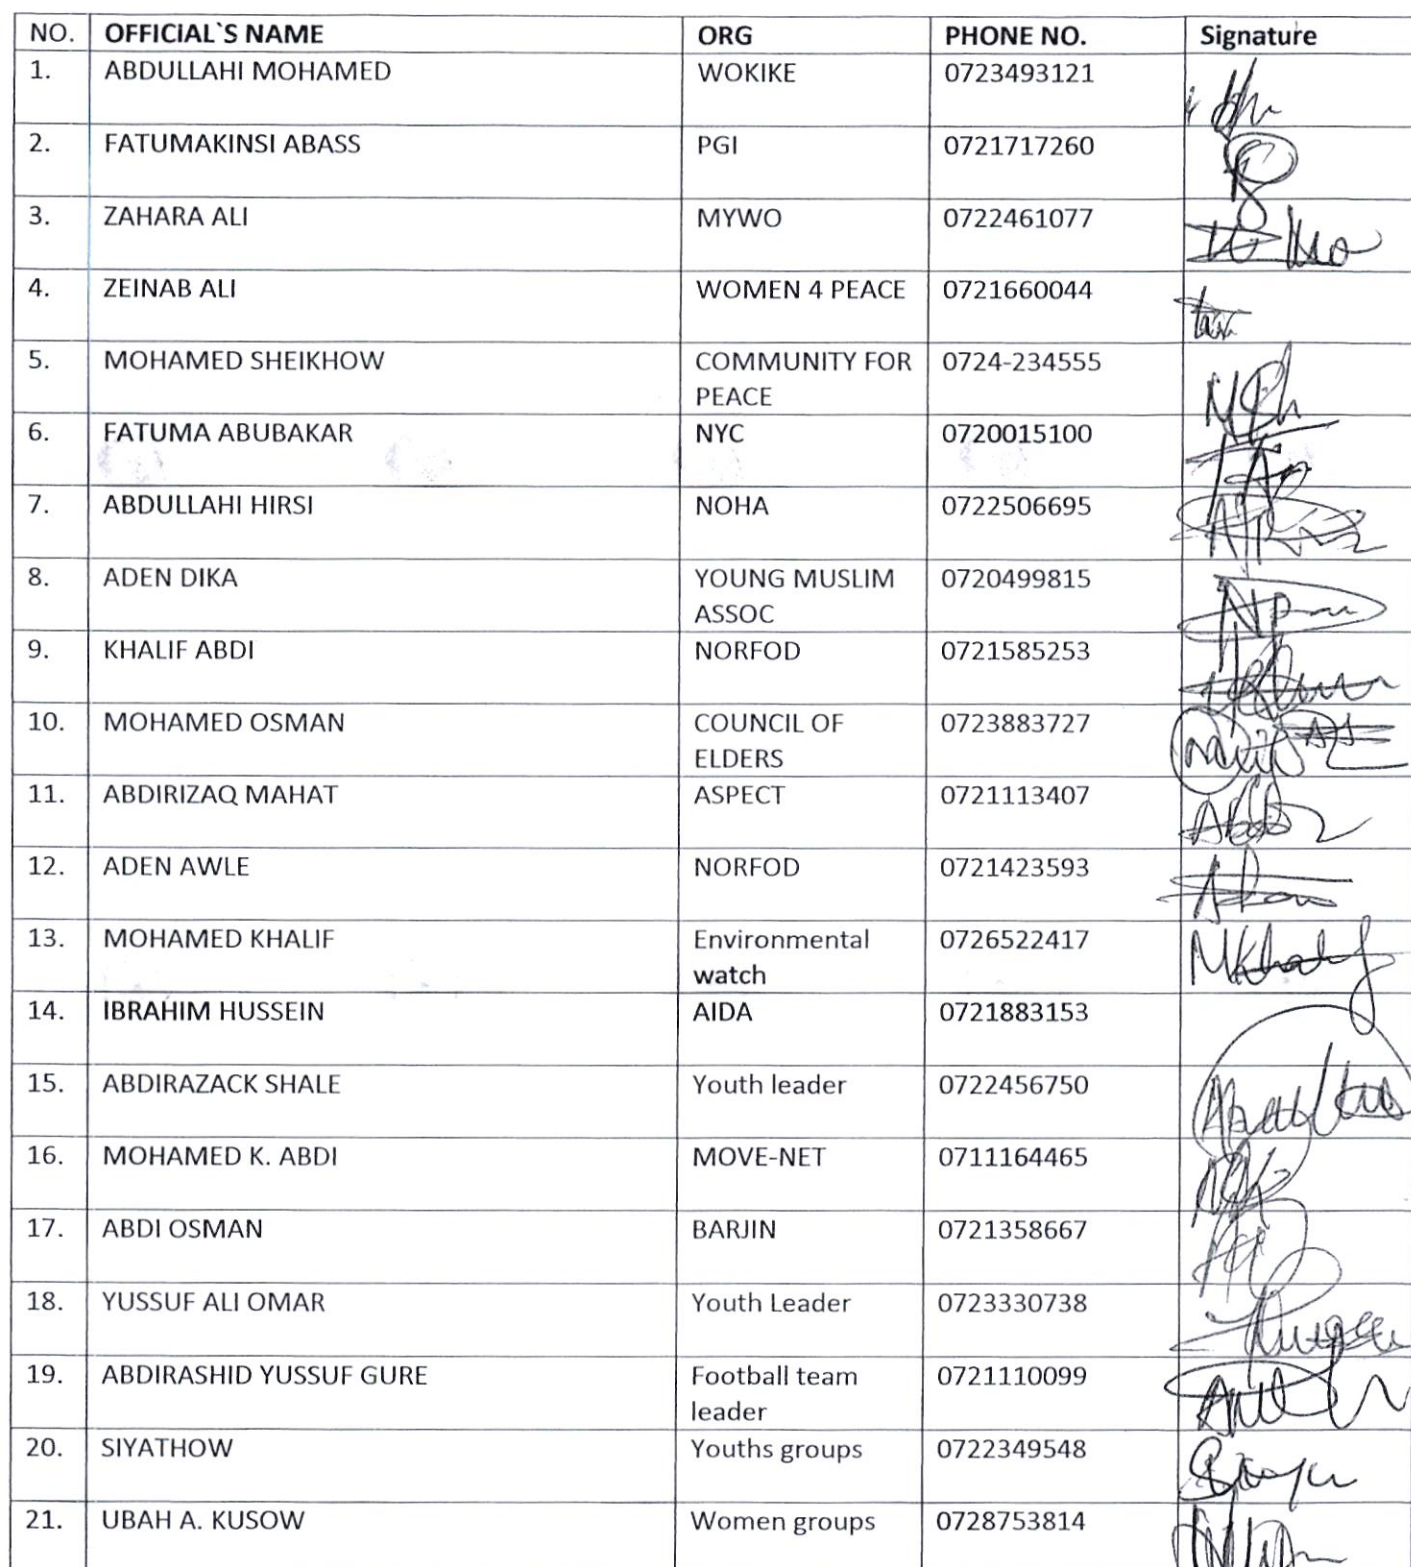 NO. OFFICIAL`S NAME ORG PHONE NO. Signature
1. ABDULLAHI MOHAMED WOKIKE 0723493121
2. FATUMAKINSI ABASS PGI 0721717260
3. ZAHARA ALI MYWO 0722461077
4. ZEINAB ALI WOMEN 4 PEACE 0721660044
5. MOHAMED SHEIKHOW COMMUNITY FOR 0724-234555
PEACE
6. FATUMA ABUBAKAR NYC 0720015100
7. ABDULLAHI HIRSI NOHA 0722506695
8. ADEN DIKA YOUNG MUSLIM 0720499815
ASSOC
9. KHALIF ABDI NORFOD 0721585253
10. MOHAMED OSMAN COUNCIL OF 0723883727
ELDERS
11. ABDIRIZAQ MAHAT ASPECT 0721113407
12. ADEN AWLE NORFOD 0721423593
13. MOHAMED KHALIF Environmental 0726522417 MKhalif
watch
14. IBRAHIM HUSSEIN AIDA 0721883153
15. ABDIRAZACK SHALE Youth leader 0722456750
16. MOHAMED K. ABDI MOVE-NET 0711164465
17. ABDI OSMAN BARJIN 0721358667
18. YUSSUF ALI OMAR Youth Leader 0723330738
19. ABDIRASHID YUSSUF GURE Football team 0721110099
leader
20. SIYATHOW Youths groups 0722349548
21. UBAH A. KUSOW Women groups 0728753814